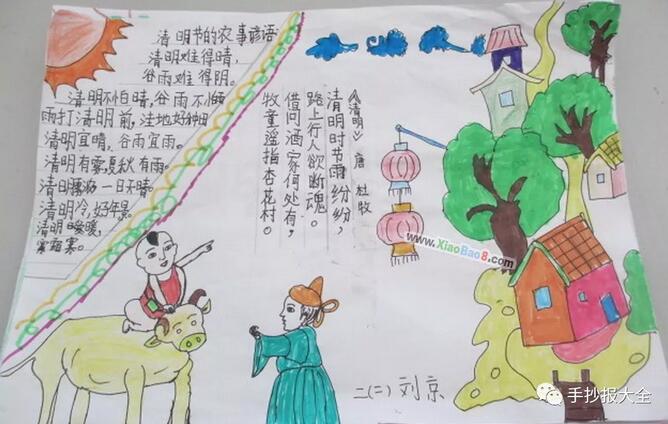 清明节的农事谚语
清明难得晴，
谷雨难得阴。
清明不怕晴，谷雨不怕
雨打清明前，洼地好种田
清明宜晴，谷雨宜雨。
清明有雾，夏秋有雨。
一日不晴。
清明冷，好年景。
清明暖，
寒。
《清明》 唐 杜牧
清明时节雨纷纷，
路上行人欲断魂。
借问酒家何处有，
牧童遥指杏花村。
www.XiaoBao8.com
二(二) 刘京
手抄报大全